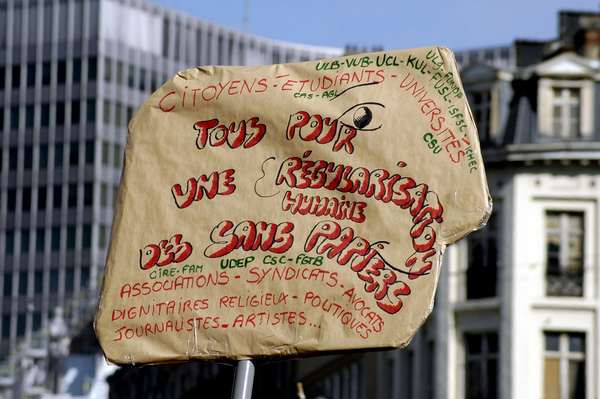 ULB-VUB-UCL-KUL-FUSL-ISFSC-
CITOYENS - ÉTUDIANTS - UNIVERSITÉS
CAS-AGL
CSU
TOUS POUR
UNE RÉGULARISATION
HUMAINE
DES SANS PAPIERS
CIRE-FAM UDEP CSC-FGTB
ASSOCIATIONS - SYNDICATS - AVOCATS
DIGNITAIRES RELIGIEUX - POLITIQUES
JOURNALISTES - ARTISTES...